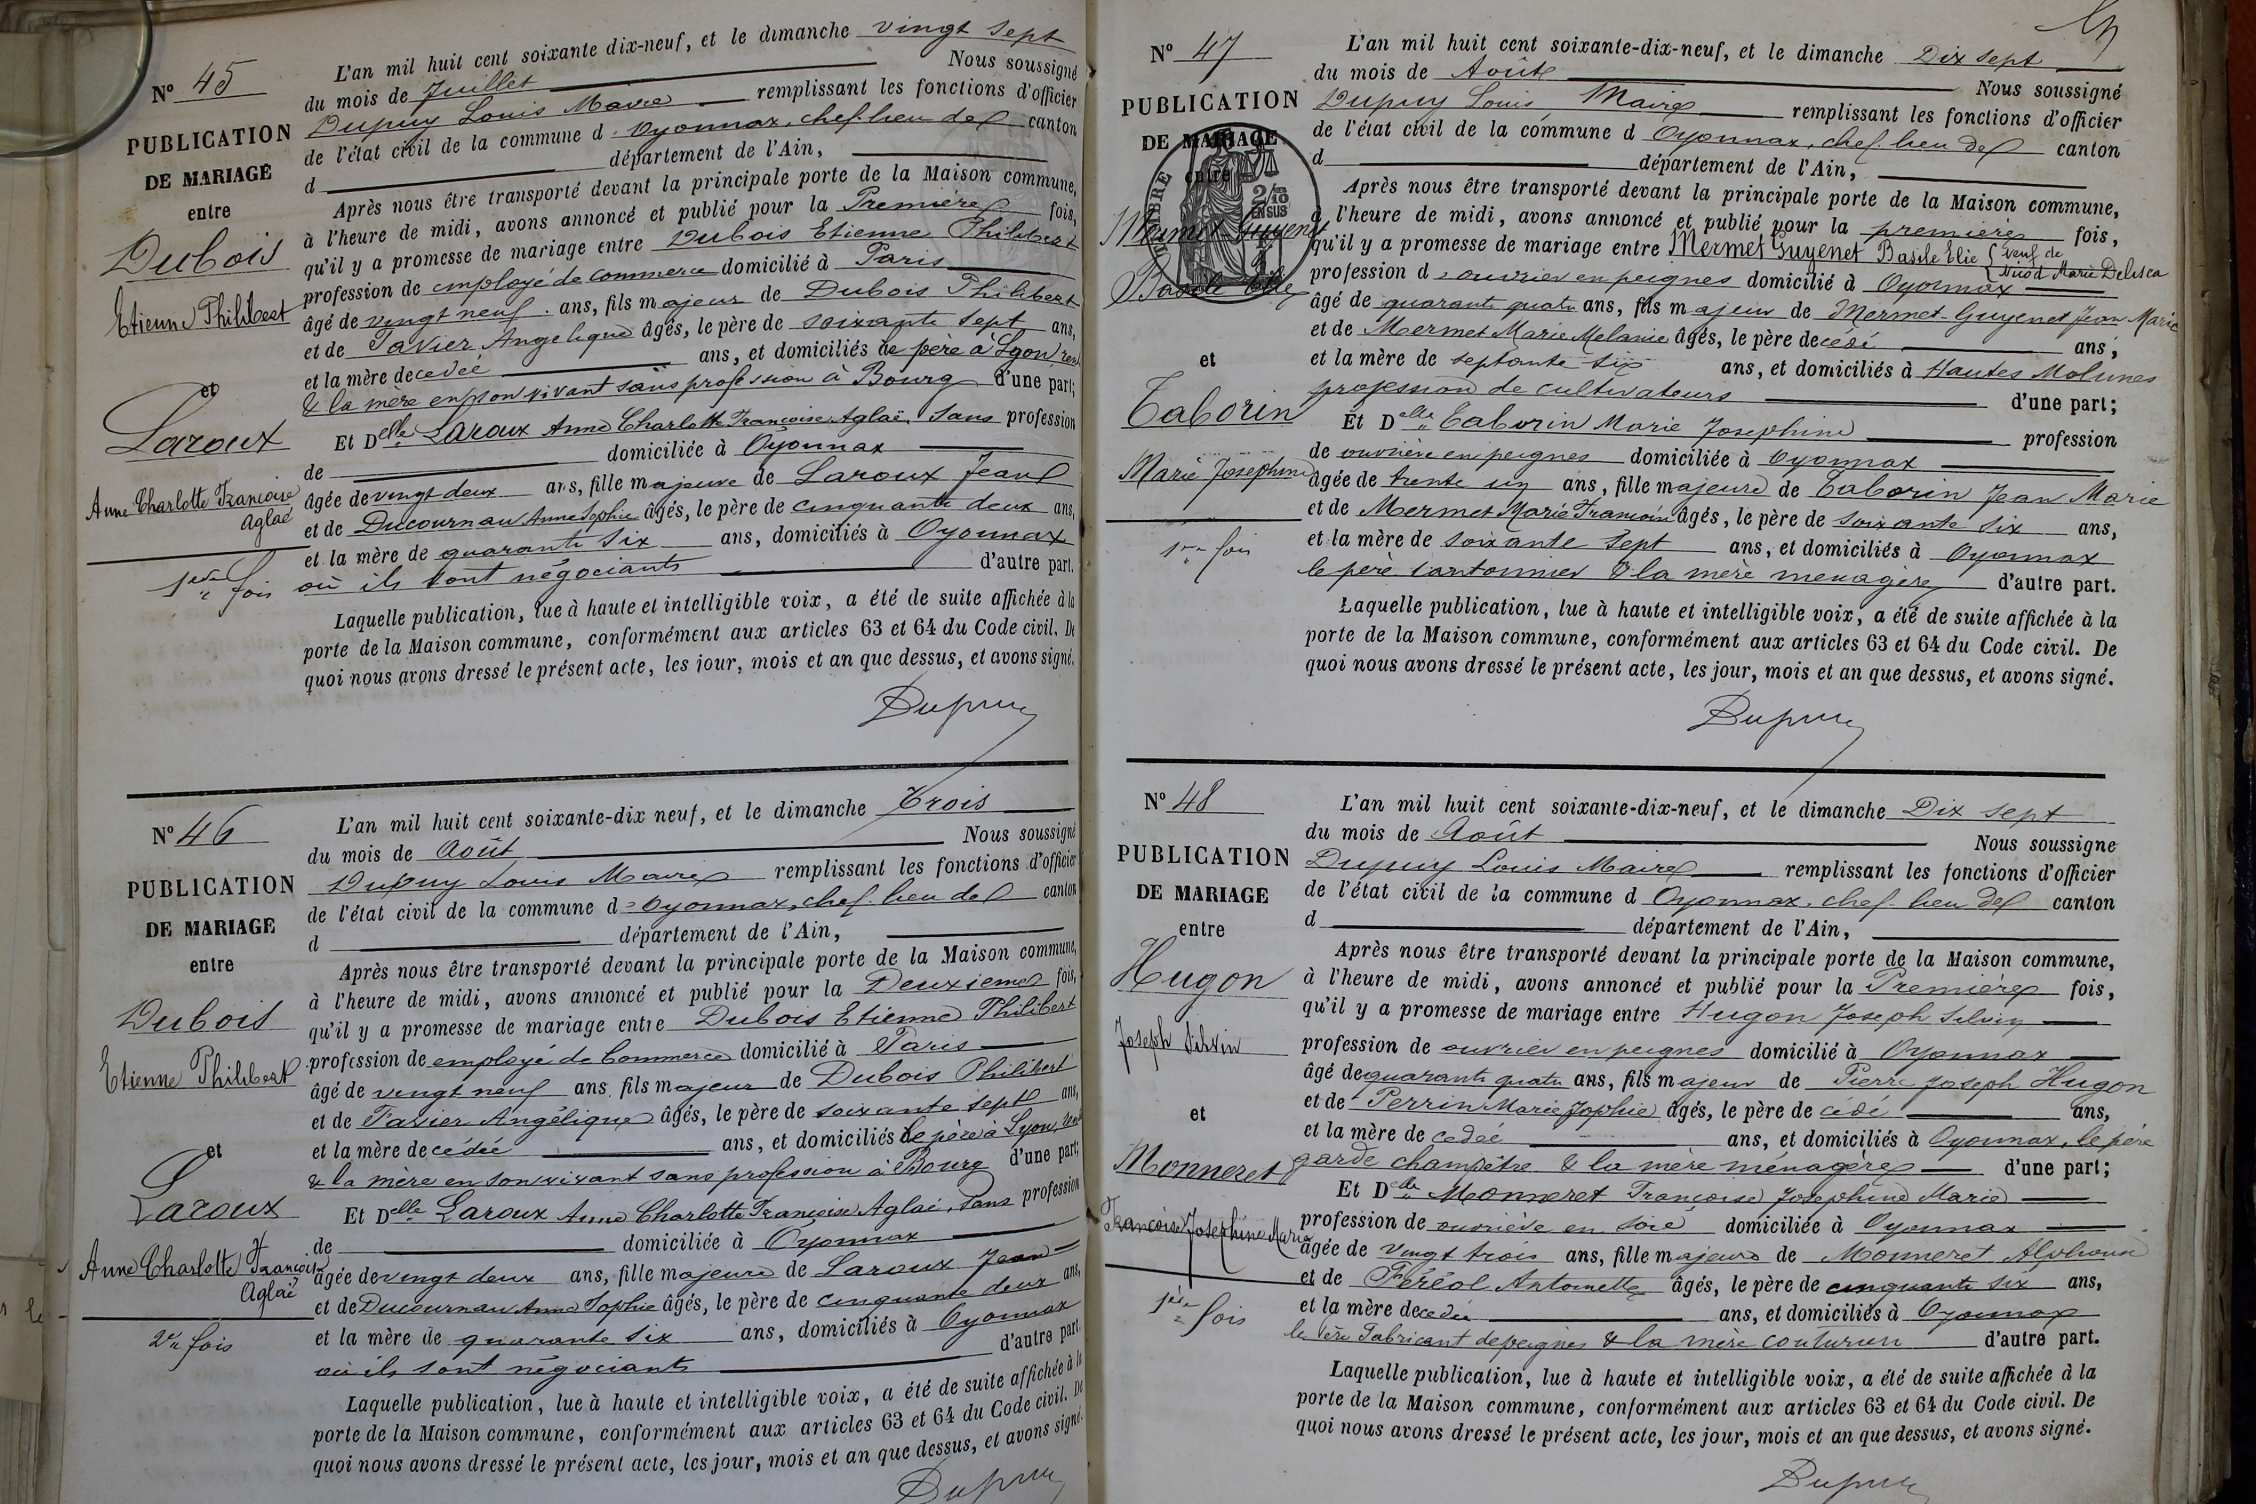 N° 45
PUBLICATION
DE MARIAGE
entre
Dubois
Etienne Philibert
et
Laroux
Anne Charlotte Françoise
Aglaé
1ere fois
L'an mil huit cent soixante dix-neuf, et le dimanche vingt sept
du mois de Juillet Nous soussigné
Dupuy Louis Maire remplissant les fonctions d'officier
de l'état civil de la commune d'Oyonnax, chef-lieu de canton
d département de l'Ain,
Après nous être transporté devant la principale porte de la Maison commune,
à l'heure de midi, avons annoncé et publié pour la Première fois,
qu'il y a promesse de mariage entre Dubois Etienne Philibert
profession de employé de commerce domicilié à Paris
âgé de vingt neuf ans, fils majeur de Dubois Philibert
et de Favier Angélique âgés, le père de soixante sept ans,
et la mère decedée ans, et domiciliés le père à Lyon
& la mère en son vivant sans profession à Bourg d'une part;
Et Delle Laroux Anne Charlotte Françoise Aglaé, sans profession
de domiciliée à Oyonnax
âgée de vingt deux ans, fille majeure de Laroux Jean
et de Ducournau Anne Sophie âgés, le père de cinquante deux ans,
et la mère de quarante six ans, domiciliés à Oyonnax
où ils sont négociants d'autre part.
Laquelle publication, lue à haute et intelligible voix, a été de suite affichée à la
porte de la Maison commune, conformément aux articles 63 et 64 du Code civil. De
quoi nous avons dressé le présent acte, les jour, mois et an que dessus, et avons signé.
Dupuy
N° 46
PUBLICATION
DE MARIAGE
entre
Dubois
Etienne Philibert
et
Laroux
Anne Charlotte Françoise
Aglaé
2e fois
L'an mil huit cent soixante-dix neuf, et le dimanche Trois
du mois de Août Nous soussigné
Dupuy Louis Maire remplissant les fonctions d'officier
de l'état civil de la commune d'Oyonnax, chef-lieu de canton
d département de l'Ain,
Après nous être transporté devant la principale porte de la Maison commune,
à l'heure de midi, avons annoncé et publié pour la Deuxieme fois,
qu'il y a promesse de mariage entre Dubois Etienne Philibert
profession de employé de Commerce domicilié à Paris
âgé de vingt neuf ans fils majeur de Dubois Philibert
et de Favier Angélique âgés, le père de soixante sept ans,
et la mère decédée ans, et domiciliés le père à Lyon
& la mère en son vivant sans profession à Bourg d'une part;
Et Delle Laroux Anne Charlotte Françoise Aglaé, sans profession
de domiciliée à Oyonnax
âgée de vingt deux ans, fille majeure de Laroux Jean
et de Ducournau Anne Sophie âgés, le père de cinquante deux ans,
et la mère de quarante six ans, domiciliés à Oyonnax
où ils sont négociants d'autre part.
Laquelle publication, lue à haute et intelligible voix, a été de suite affichée à la
porte de la Maison commune, conformément aux articles 63 et 64 du Code civil. De
quoi nous avons dressé le présent acte, les jour, mois et an que dessus, et avons signé.
Dupuy
N° 47
PUBLICATION
DE MARIAGE
entre
TIMBRE
2/10
EN SUS
Mermet-Guyenet
Basile Elie
et
Taborin
Marie Josephine
1ere fois
L'an mil huit cent soixante-dix-neuf, et le dimanche Dix sept
du mois de Août Nous soussigné
Dupuy Louis Maire remplissant les fonctions d'officier
de l'état civil de la commune d Oyonnax, chef-lieu de canton
d département de l'Ain,
Après nous être transporté devant la principale porte de la Maison commune,
à l'heure de midi, avons annoncé et publié pour la première fois,
qu'il y a promesse de mariage entre Mermet Guyenet Basile Elie { veuf de
Nicod Marie Delisca
profession d'ouvrier en peignes domicilié à Oyonnax
âgé de quarante quatre ans, fils majeur de Mermet-Guyenet Jean Marie
et de Mermet Marie Melanie âgés, le père decédé ans,
et la mère de septante six ans, et domiciliés à Hautes Molunes
profession de cultivateurs d'une part;
Et Delle Taborin Marie Josephine profession
de ouvrière en peignes domiciliée à Oyonnax
âgée de trente un ans, fille majeure de Taborin Jean Marie
et de Mermet Marie Françoise âgés, le père de soixante six ans,
et la mère de soixante sept ans, et domiciliés à Oyonnax
le père cantonnier & la mère menagère d'autre part.
Laquelle publication, lue à haute et intelligible voix, a été de suite affichée à la
porte de la Maison commune, conformément aux articles 63 et 64 du Code civil. De
quoi nous avons dressé le présent acte, les jour, mois et an que dessus, et avons signé.
Dupuy
N° 48
PUBLICATION
DE MARIAGE
entre
Hugon
Joseph Silvin
et
Monneret
Françoise Josephine Marie
1ère fois
L'an mil huit cent soixante-dix-neuf, et le dimanche Dix sept
du mois de Août Nous soussigne
Dupuy Louis Maire remplissant les fonctions d'officier
de l'état civil de la commune d Oyonnax, chef-lieu de canton
d département de l'Ain,
Après nous être transporté devant la principale porte de la Maison commune,
à l'heure de midi, avons annoncé et publié pour la Première fois,
qu'il y a promesse de mariage entre Hugon Joseph Silvin
profession de ouvrier en peignes domicilié à Oyonnax
âgé de quarante quatre ans, fils majeur de Pierre Joseph Hugon
et de Perrin Marie Sophie âgés, le père de cédé ans,
et la mère de cedée ans, et domiciliés à Oyonnax, le père
garde champêtre & la mère ménagère d'une part;
Et Delle Monneret Françoise Josephine Marie
profession de ouvrière en soie domiciliée à Oyonnax
âgée de vingt trois ans, fille majeure de Monneret Alphonse
et de Féréol Antoinette âgés, le père de cinquante six ans,
et la mère decedée ans, et domiciliés à Oyonnax
le père Fabricant de peignes & la mère d'autre part.
Laquelle publication, lue à haute et intelligible voix, a été de suite affichée à la
porte de la Maison commune, conformément aux articles 63 et 64 du Code civil. De
quoi nous avons dressé le présent acte, les jour, mois et an que dessus, et avons signé.
Dupuy